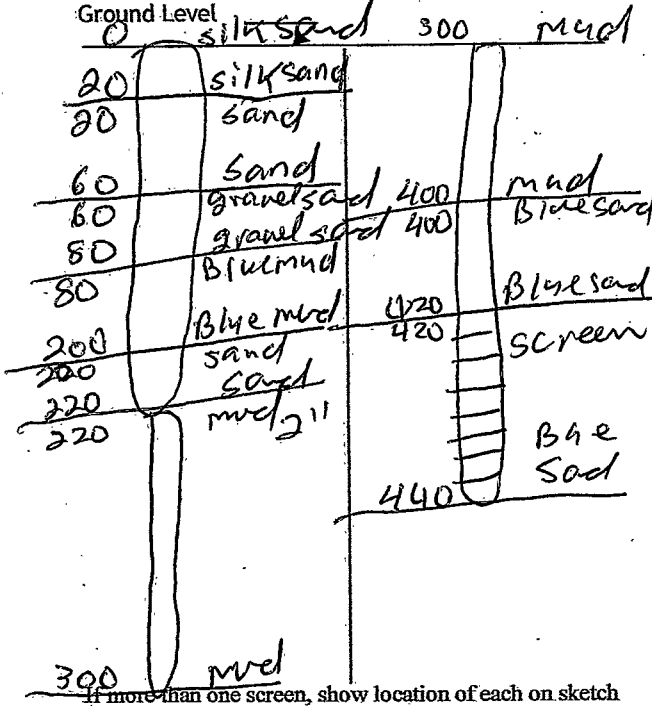 Ground Level
0 silksand
20 silksand
20 sand
60 sand
60 gravelsad
80 gravel sand
80 Bluemud
200 Blue mud
200 sand
220 sand
220 mud 2"
300 mud
300 mud
400 mud
400 Bluesand
420 Bluesand
420 screen
Bue
Sad
440
If more than one screen, show location of each on sketch